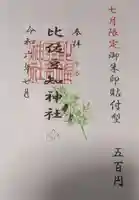 七月限定御朱印貼付型
五百円
奉拝
比佐豆知神社
令和六年七月